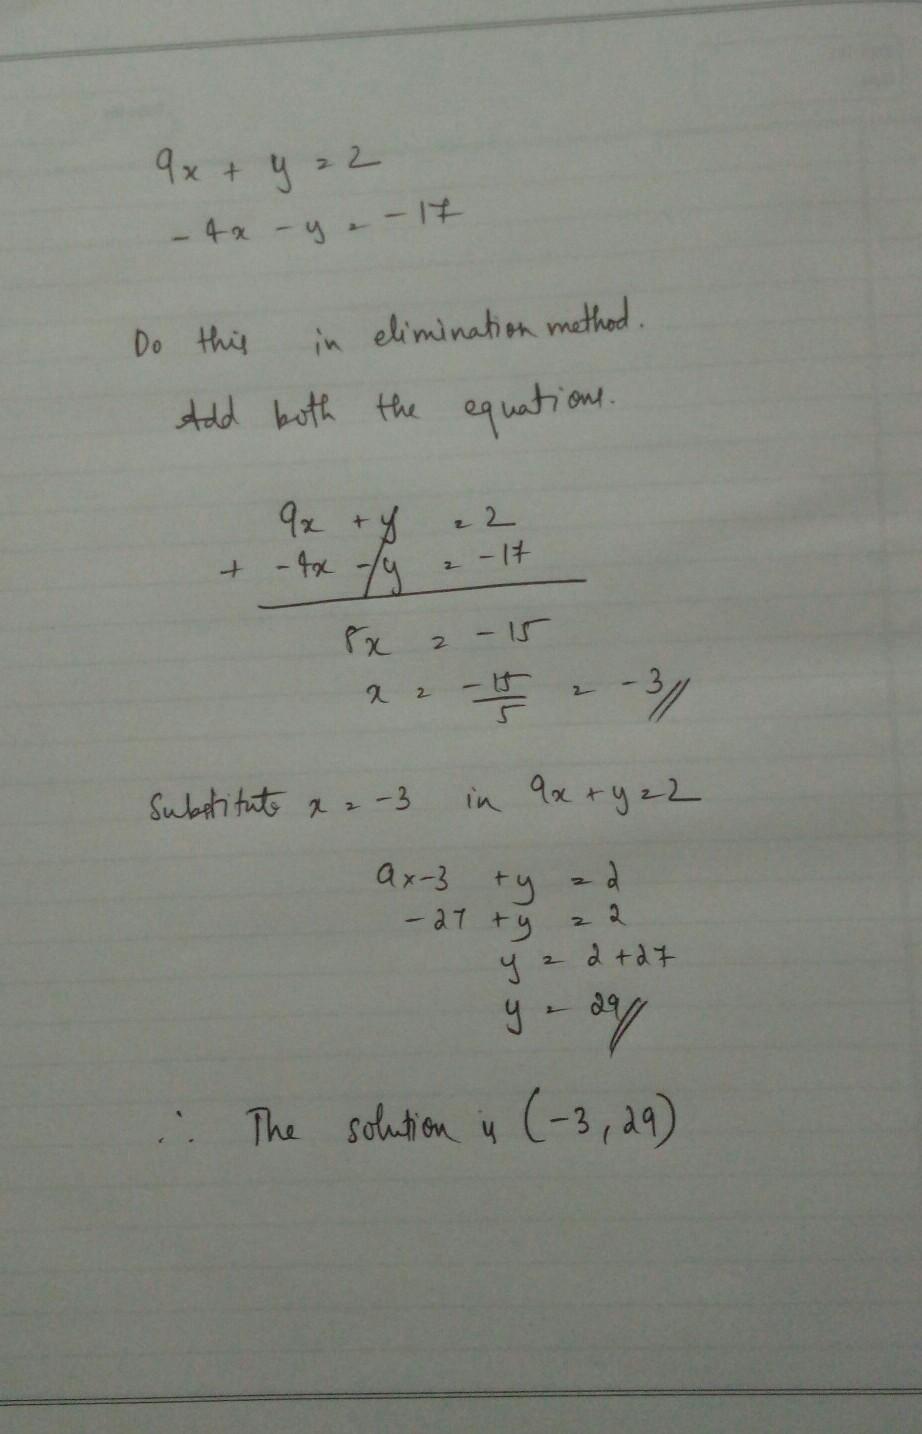 9x + y = 2
- 4x - y = - 17
Do this in elimination method.
Add both the equations.
9x + y = 2
+ - 4x - y = - 17
5x = - 15
x = - 15/5 = - 3//
Substitute x = -3 in 9x + y = 2
9 x -3 + y = 2
- 27 + y = 2
y = 2 + 27
y = 29//
∴ The solution is (-3, 29)